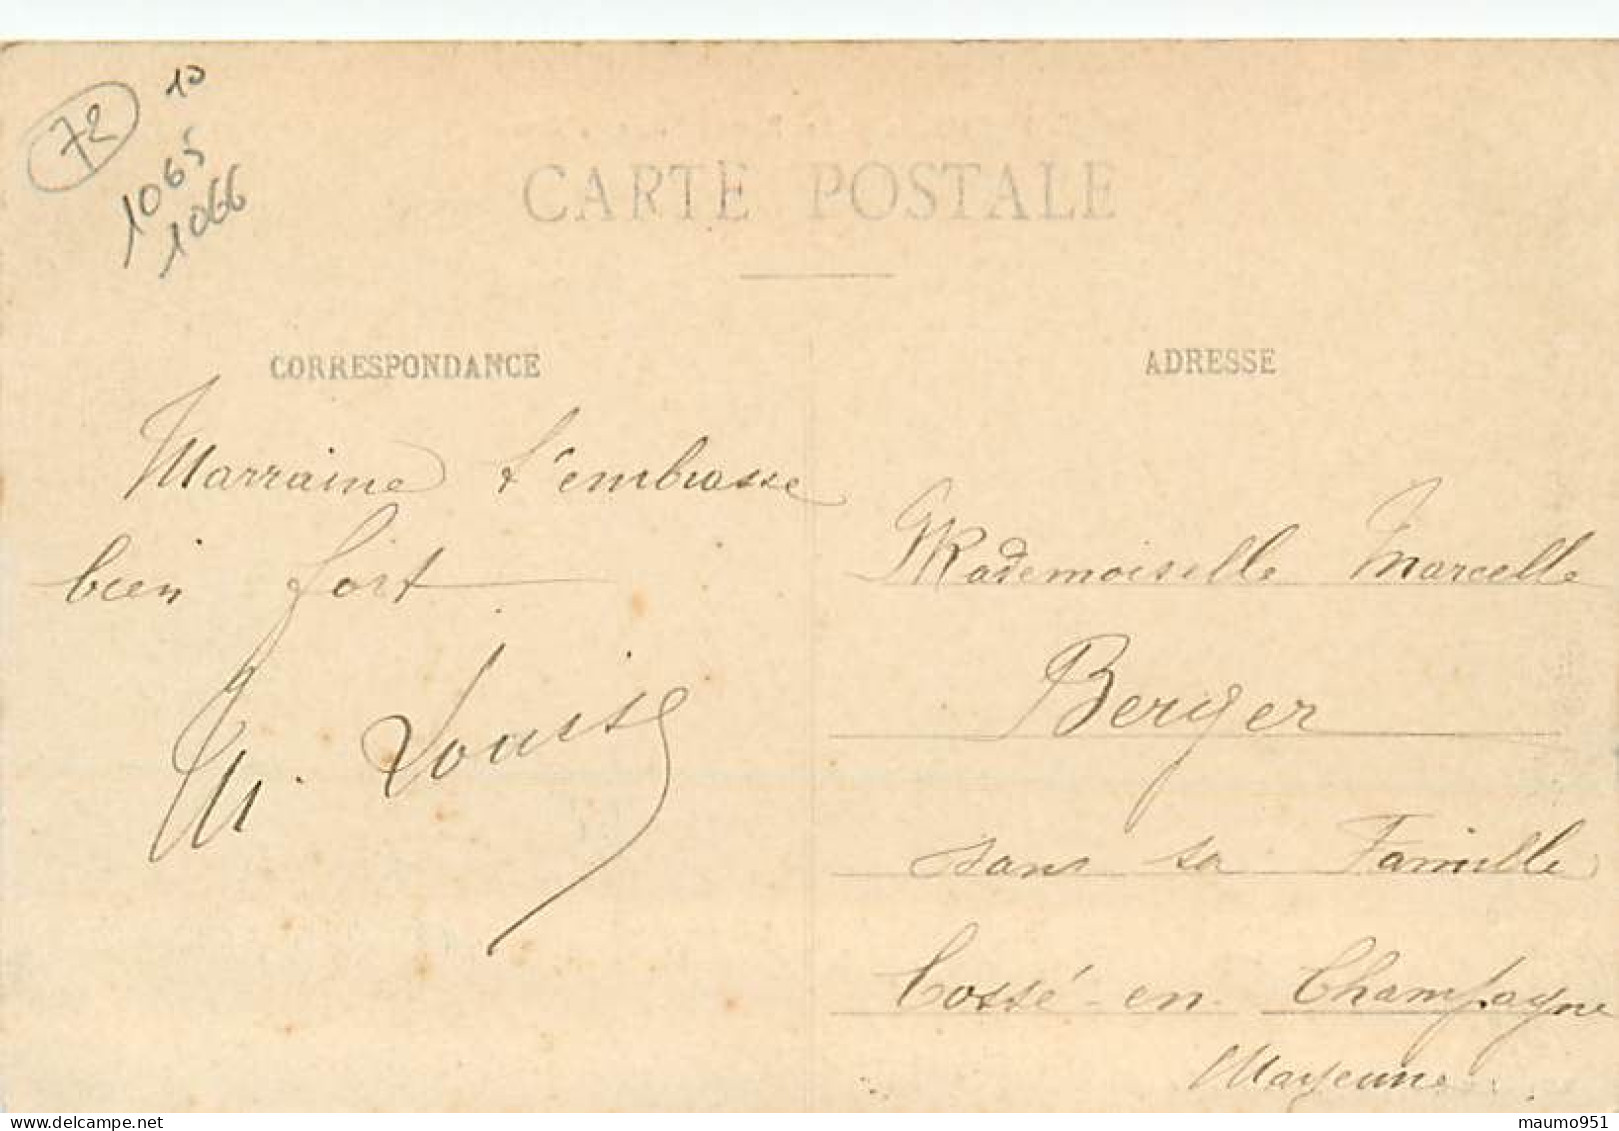 72
10
1065
1066
CARTE POSTALE
CORRESPONDANCE
Marraine t'embrasse
bien fort
M. Louise
ADRESSE
Mademoiselle Marcelle
Berger
dans sa Famille
Cossé-en-Champagne
Mayenne
maumo951